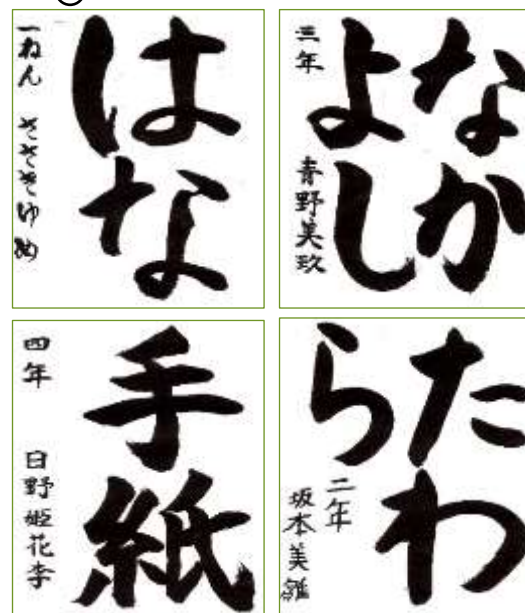 はな
一ねん ささきゆめ
なか
よし
三年 青野美玖
手紙
四年 日野姫花李
たわ
ら
二年
坂本美雛